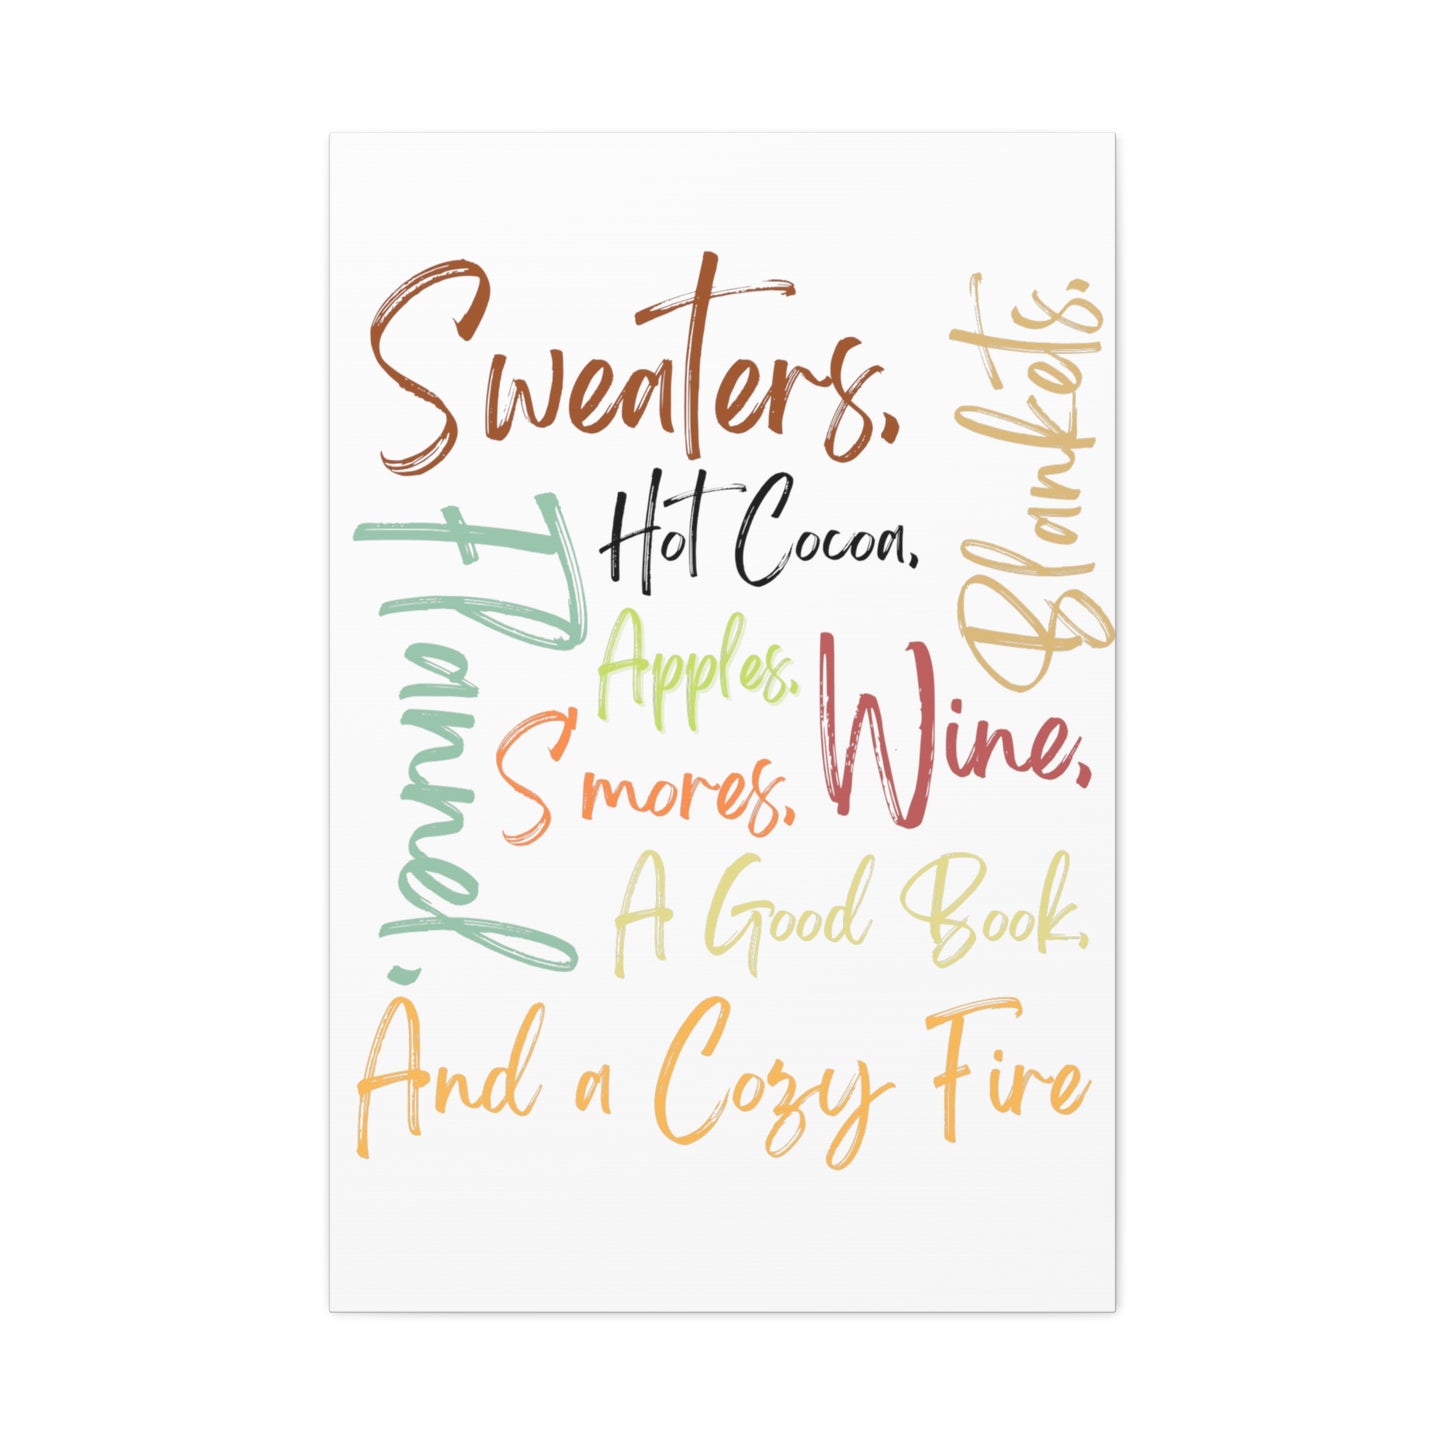 Sweaters,
Blankets,
Hot Cocoa,
Flannel,
Apples,
Wine,
S'mores,
A Good Book,
And a Cozy Fire